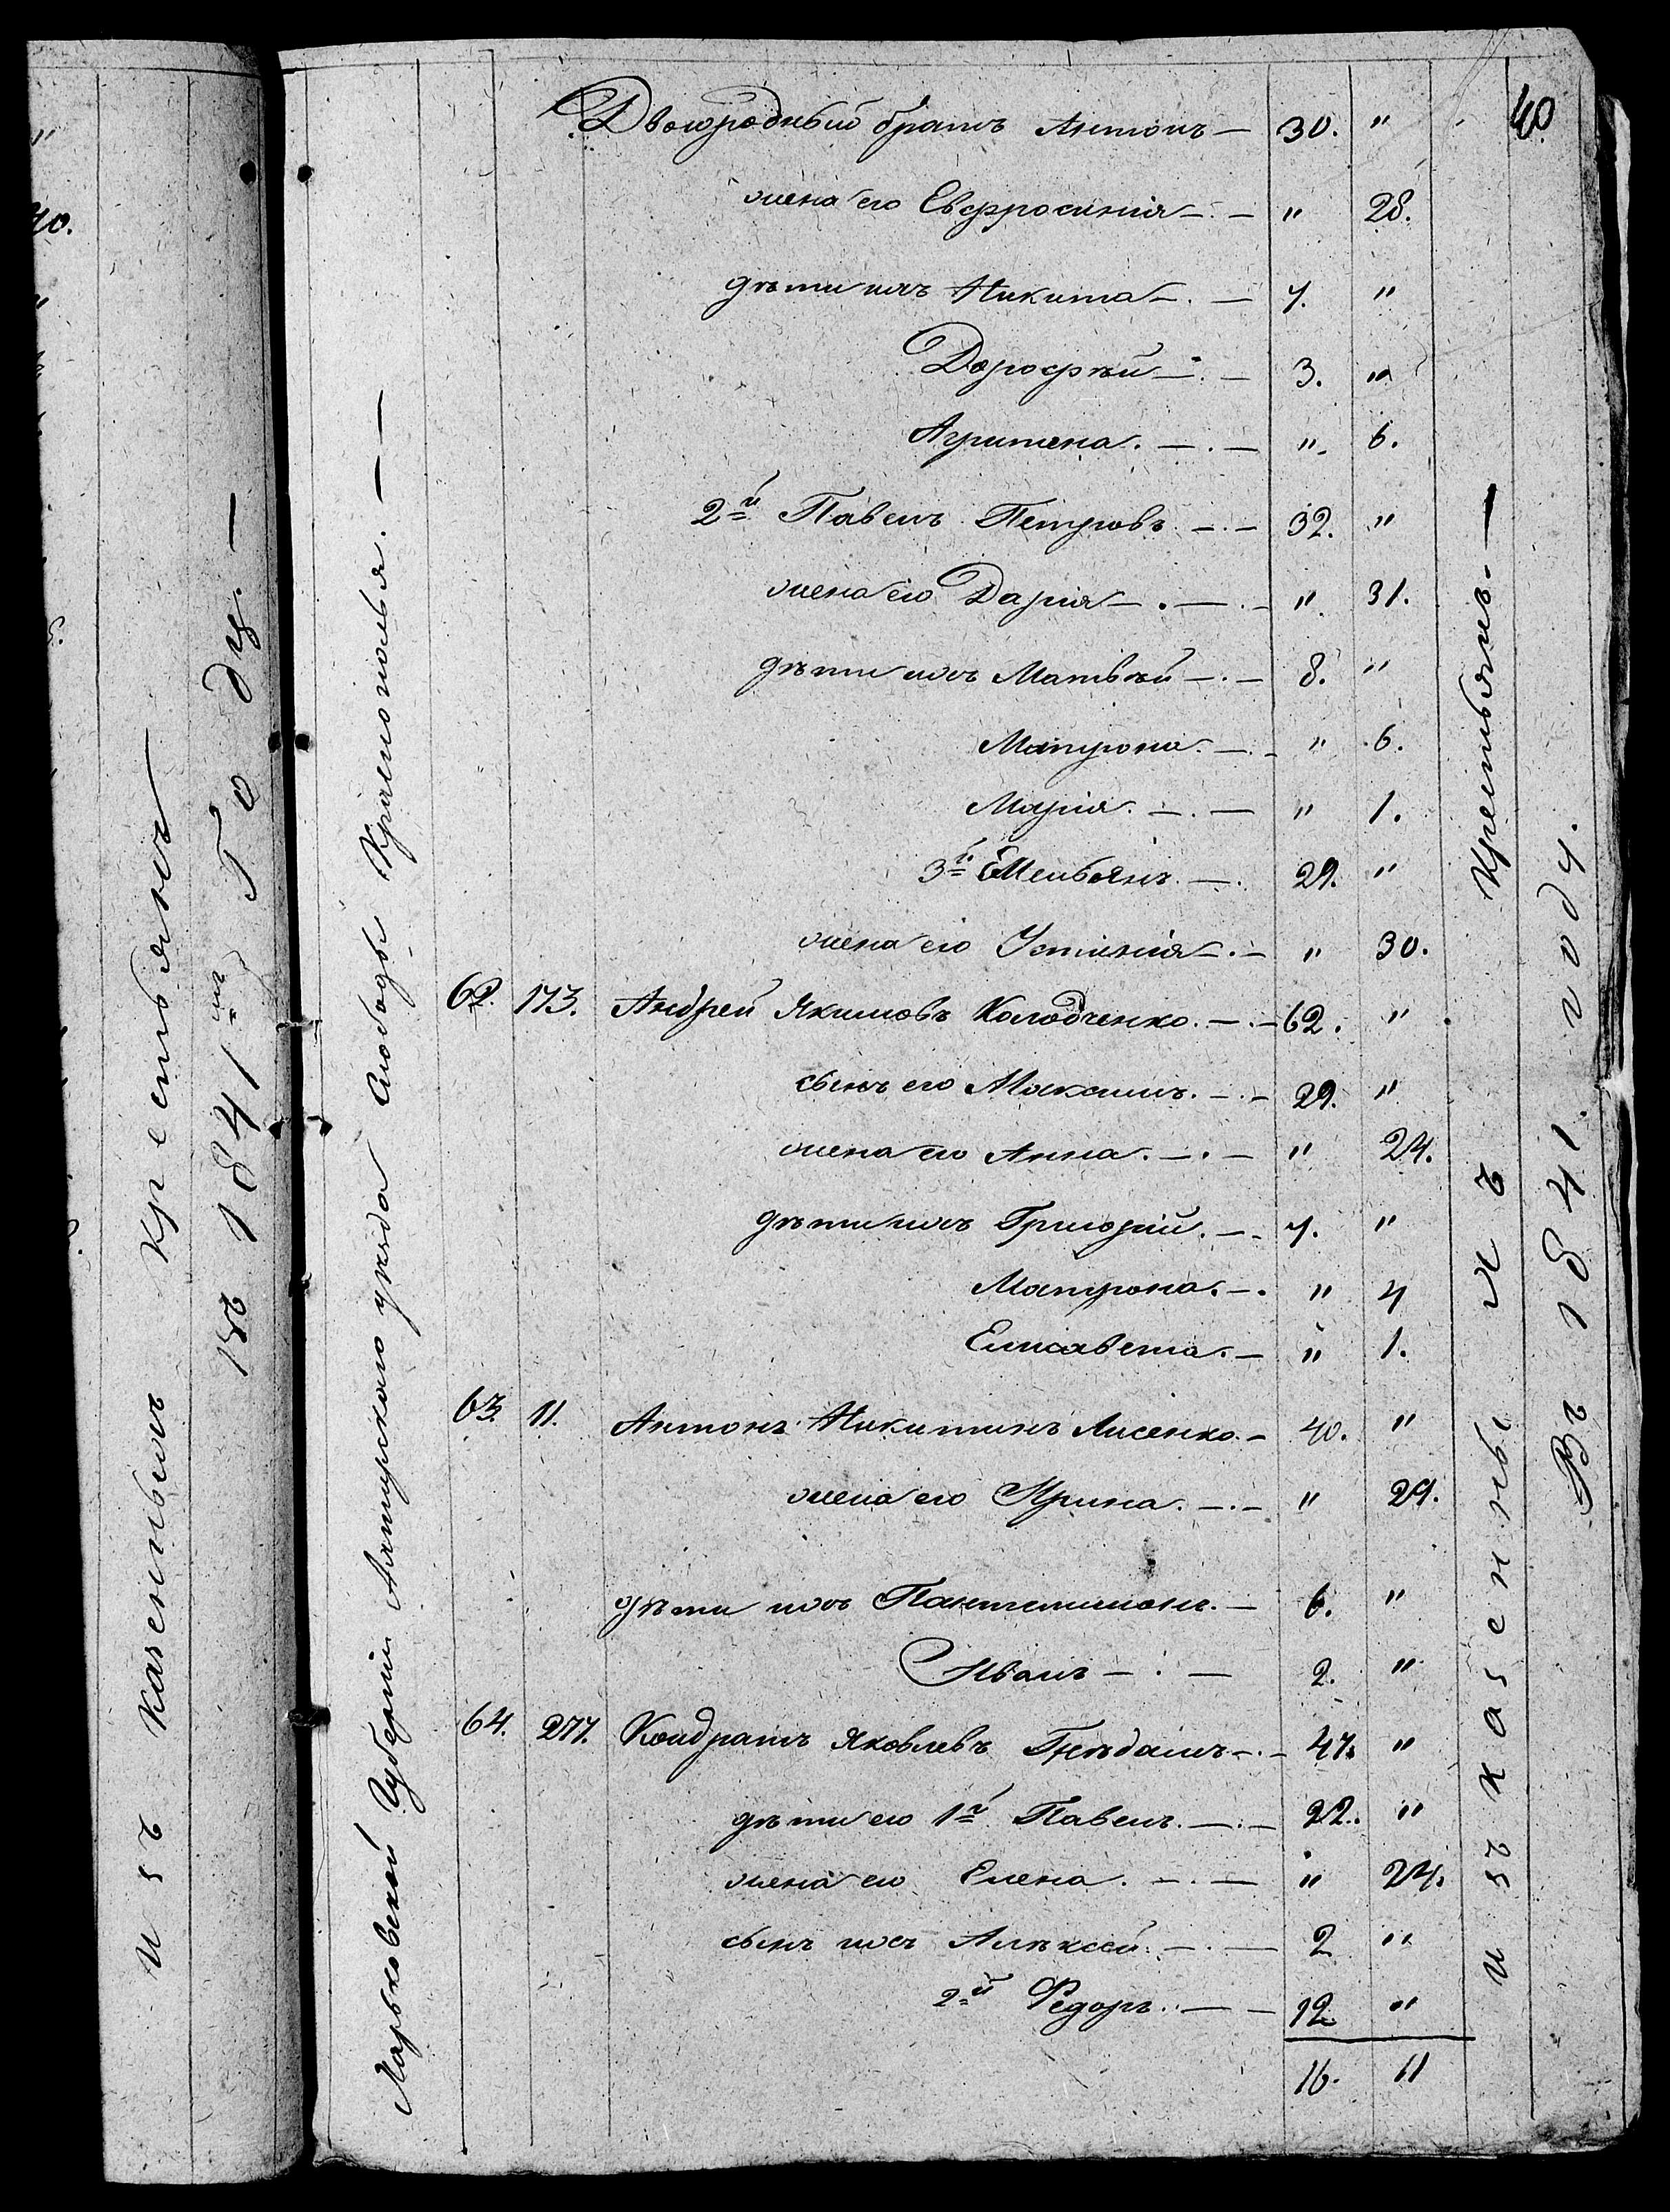 40
Двоюродный братъ Антонъ — 30. "
жена его Евфросинія — " 28.
дѣти ихъ Никита — 7. "
Дорофѣй — 3. "
Агрипена. — " 6.
2й Павелъ Петровъ — 32. "
жена его Дарія — " 31.
дѣти ихъ Матвѣй — 8. "
Матрона. — " 6.
Марія. — " 1.
3й Емельянъ — 29. "
жена его Устинія — " 30.
62. 173. Андрей Якимовъ Колодченко. — 62. "
сынъ его Максимъ. — 29. "
жена его Анна. — " 24.
дѣти ихъ Григорій. — 7. "
Матрона. — " 4
Елисавета. — " 1.
63. 11. Антонъ Никитинъ Лисенко. — 40. "
жена его Ирина. — " 29.
дѣти ихъ Пантелимонъ. — 6. "
Иванъ — 2. "
64. 277. Кондратъ Яковлевъ — 47. "
дѣти его 1й Павелъ. — 22. "
жена его Елена. — " 24.
сынъ ихъ Алѣксей. — 2 "
2й Федоръ. — 12 "
16. 11
Харьковской Губерніи Ахтырскаго уѣзда Слободы Краснополья. —
изъ казенныхъ Крестьянъ —
въ 1841мъ Году. —
изъ казенныхъ Крестьянъ. —
Въ 1841. году.
40.